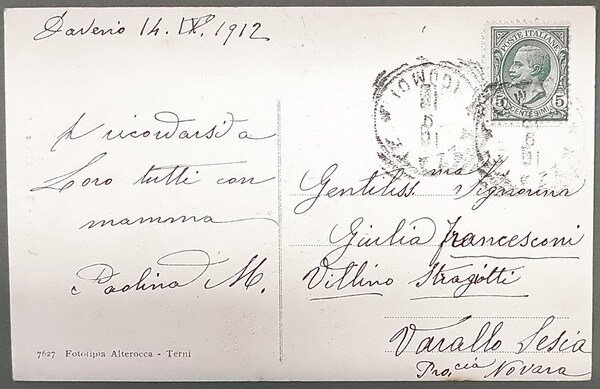 Daverio 14. IX. 1912
POSTE ITALIANE
5 5
ricordarsi a
Loro tutti con
mamma
e Paolina M.
Gentiliss.ma Signorina
Giulia Francesconi
Villino Stragiotti
Varallo Sesia
Pro.cia Novara
7627 Fototipia Alterocca - Terni